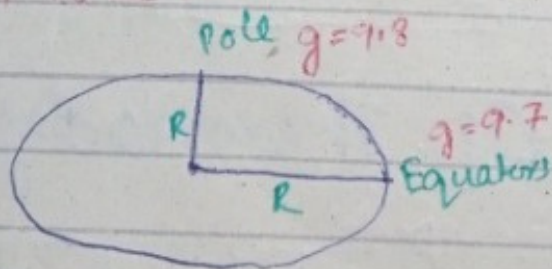 Pole g=9.8
R
g=9.7
Equators
R